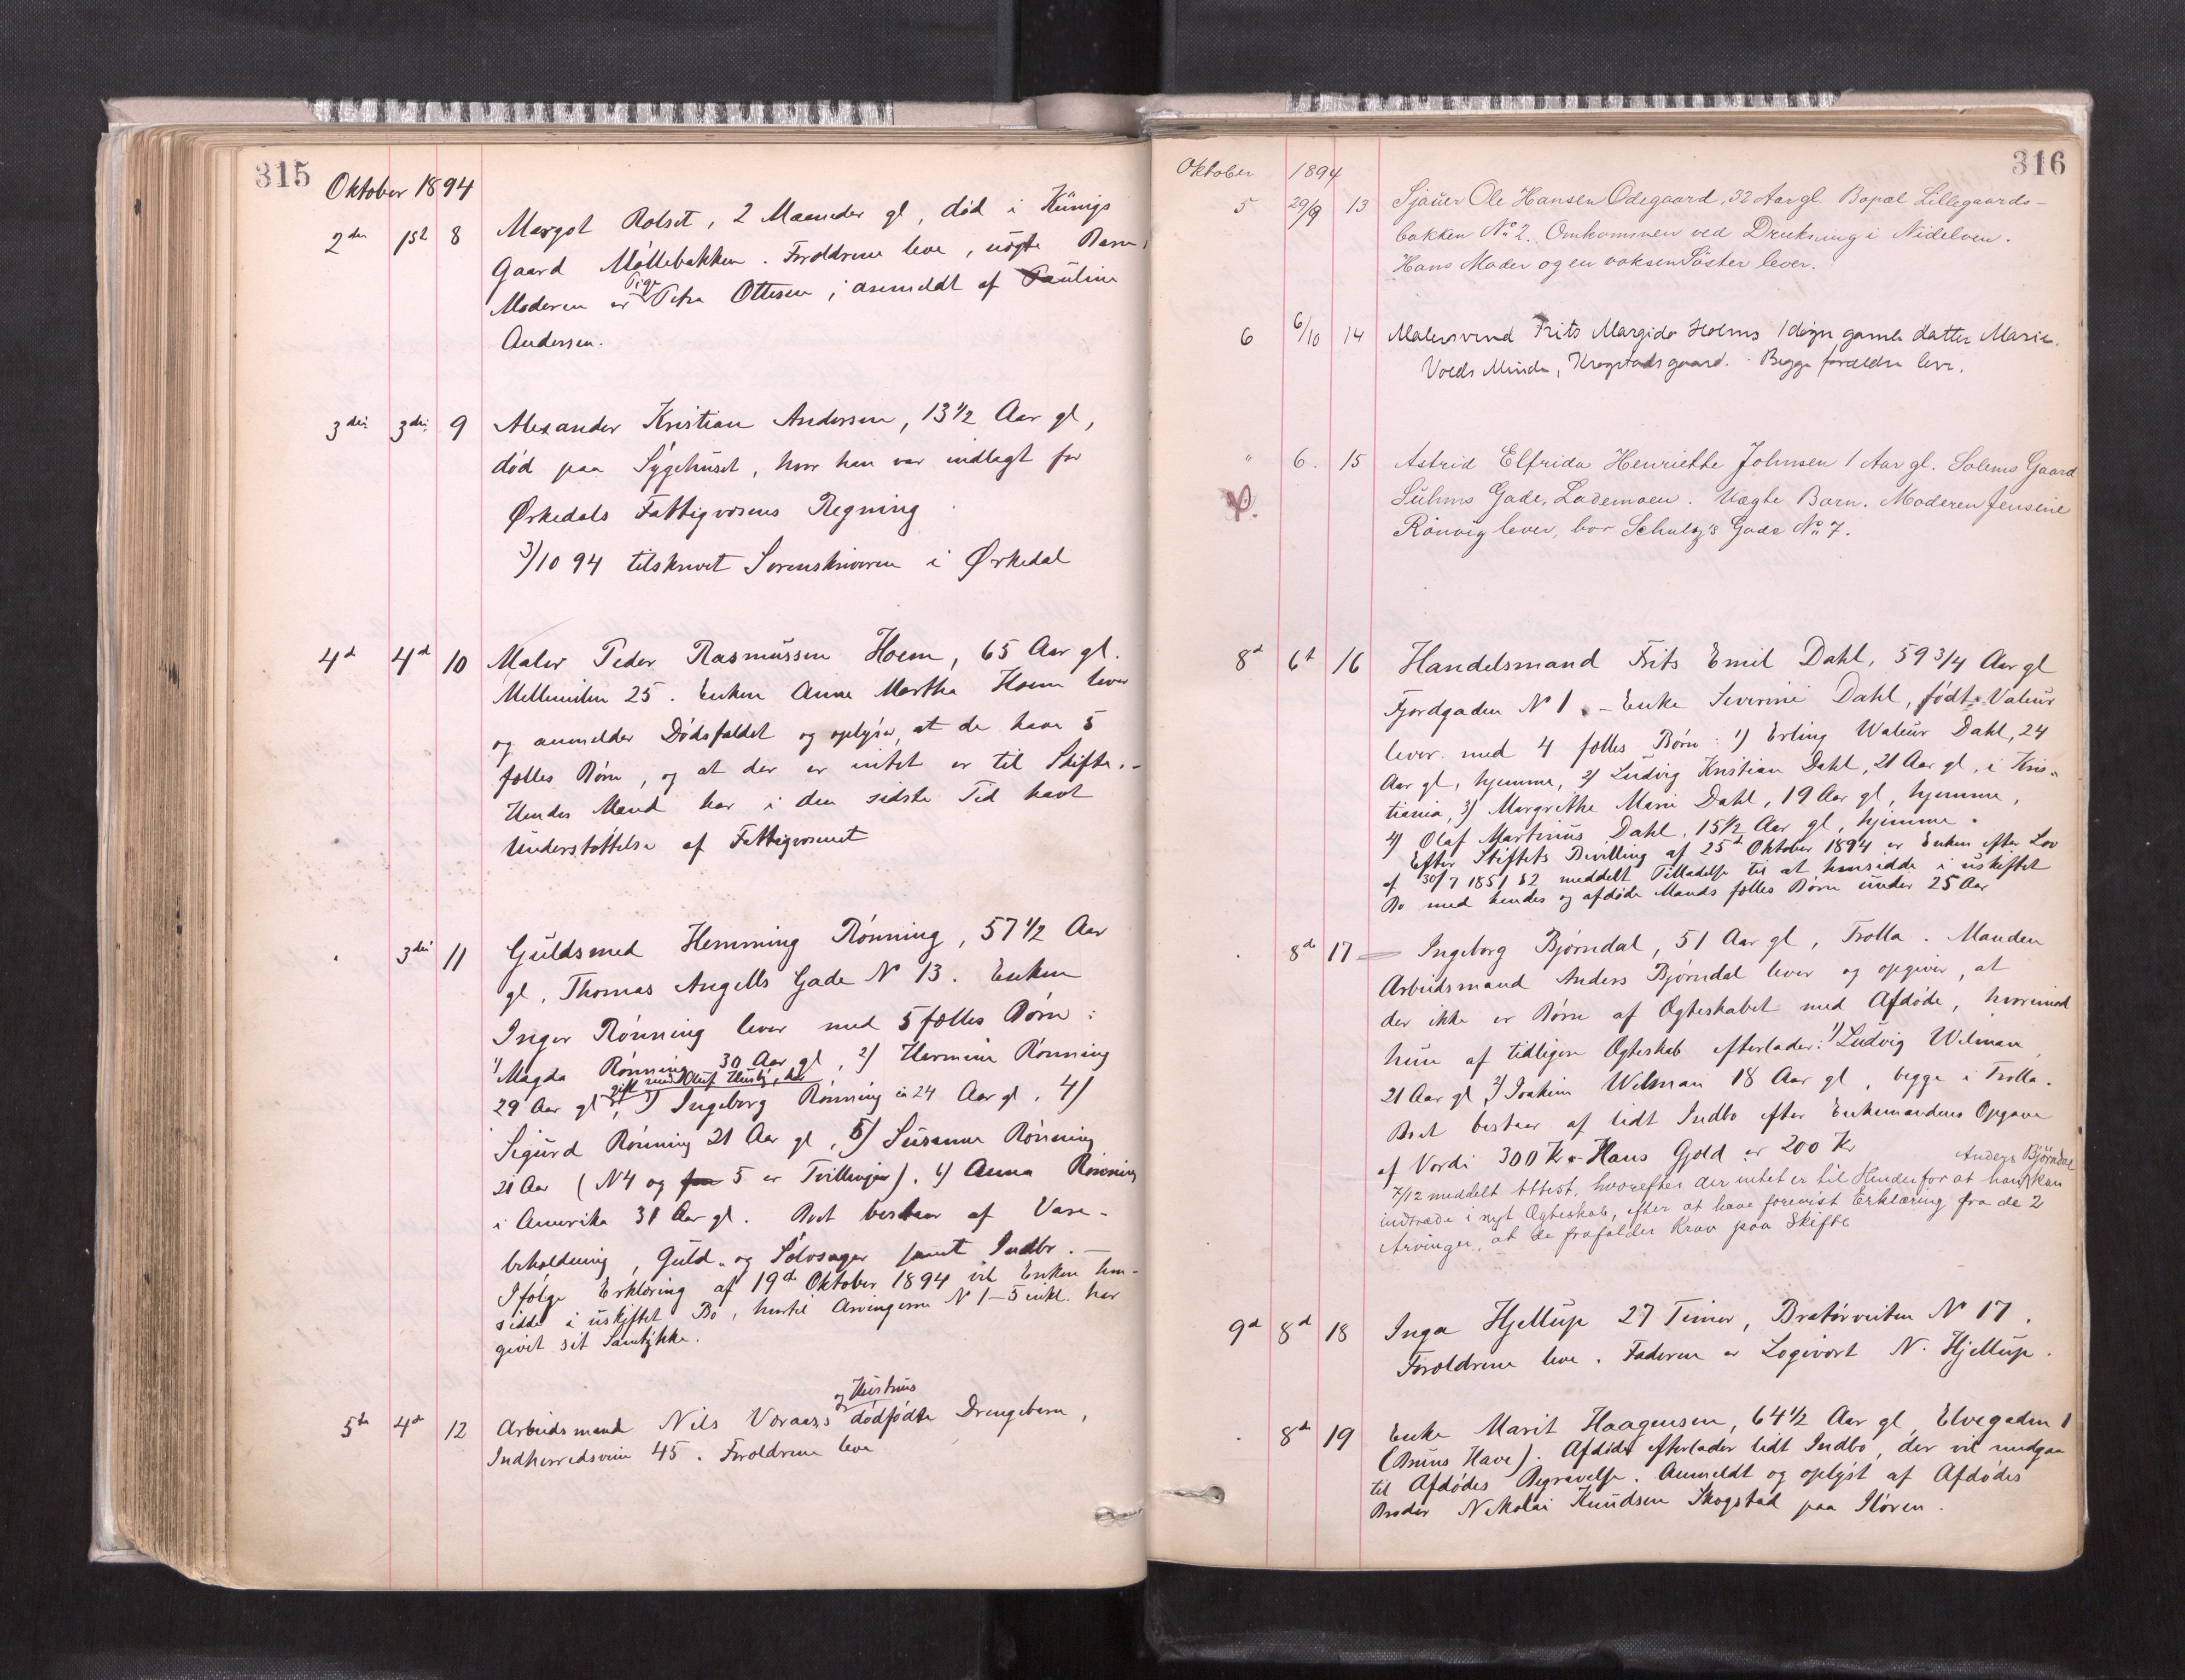 315
Oktober 1894
2den 1st 8 Margot Rolset, 2 Maaneder gl, død i Künigs
Gaard Møllebakken. Forældrene leve, uægte Barn,
Moderen er Pige Petra Ottesen; anmeldt af Pauline
Andersen.
3die 3die 9 Alexander Kristian Andersen, 13 1/2 Aar gl,
død paa Sygehuset, hvor han var indlagt for
Ørkedals Fattigvæsens Regning
3/10 94 tilskrevet Sorenskriveren i Ørkedal
4d 4d 10 Maler Peder Rasmussen Hoem, 65 Aar gl.
Mellemilen 25. Enken Anne Martha Hoem lever
og anmelder Dødsfaldet og oplyser, at de have 5
fælles Børn, og at der er intet er til Skifte. -
Hendes Mand har i den sidste Tid havt
Understøttelse af Fattigvæsenet
3die 11 Guldsmed Hemming Rønning, 57 1/2 Aar
gl, Thomas Angells Gade N 13. Enken
Inger Rønning lever med 5 fælles Børn:
1) Magda Rønning 30 Aar gl, 2) Hermine Rønning
gift med Oluf Husby, her
29 Aar gl, 3) Ingeborg Rønning 24 Aar gl, 4)
Sigurd Rønning 21 Aar gl, 5) Susanne Rønning
21 Aar (N4 og 5 er Tvillinger). 6) Anna Rønning
i Amerika 31 Aar gl. Boet bestaar af Vare-
beholdning, Guld- og Sølvsager samt Indbo. -
Ifølge Erklæring af 19d Oktober 1894 vil Enken hen-
sidde i uskiftet Bo, hvortil Arvingerne N 1-5 inkl. har
givet sit Samtykke.
og Hustrus
5te 4d 12 Arbeidsmand Nils Voraass dødfødte Drengebarn,
Indherredsveien 45. Forældrene leve
316
Oktober 1894
5 29/9 13 Sjauer Ole Hansen Ødegaard, 32 Aar gl. Bopæl Lillegaards-
bakken No 2. Omkommen ved Drukning i Nidelven.
Hans Moder og en voksen Søster lever.
6 6/10 14 Malersvend Frits Margido Holms 1 døgn gamle datter Marie.
Volds Minde, Krogstadsgaard. Begge forældre leve.
" 6. 15 Astrid Elfrida Henriette Johnsen 1 Aar gl. Solems Gaard
Suhms Gade, Lademoen. Uægte Barn. Moderen Jensine
Rønvig lever, bor Schultz's Gade No 7.
8d 6t 16 Handelsmand Frits Emil Dahl, 59 3/4 Aar gl
Fjordgaden N 1. - Enke Severine Dahl, født Valeur
lever med 4 fælles Børn: 1) Erling Waleur Dahl, 24
Aar gl, hjemme, 2) Ludvig Kristian Dahl, 21 Aar gl, i Kris-
tiania, 3) Margrethe Marie Dahl, 19 Aar gl, hjemme,
4) Olaf Martinus Dahl, 15 1/2 Aar gl, hjemme.
Efter Stiftets Bevilling af 25d Oktober 1894 er Enken efter Lov
af 30/7 1851 § 2 meddelt Tilladelse til at hensidde i uskiftet
Bo med hendes og afdøde Mands fælles Børn under 25 Aar
8de 17 Ingeborg Bjørndal, 51 Aar gl, Trolla. Manden
Arbeidsmand Anders Bjørndal lever og opgiver, at
der ikke er Børn af Ægteskabet med Afdøde, hvorimod
hun af tidligere Ægteskab efterlader: 1) Ludvig Wilman
21 Aar gl, 2) Joakim Wilman 18 Aar gl, begge i Trolla.
Boet bestaar af lidt Indbo efter Enkemandens Opgave
af Værdi 300 Kr. Hans Gjæld er 200 Kr
Anders Bjørndal
7/12 meddelt Attest, hvorefter der intet er til Hinder for at han kan
indtræde i nyt Ægteskab, efter at have forevist Erklæring fra de 2
Arvinger, at de frafalder Krav paa Skifte
9d 8d 18 Inga Hjellup 27 Timer, Bratørveiten N 17.
Forældrene leve. Faderen er Logivært N. Hjellup.
8de 19 Enke Marit Haagensen, 64 1/2 Aar gl, Elvegaden 1
(Bruns Have). Afdøde efterlader lidt Indbo, der vil medgaa
til Afdødes Begravelse. Anmeldt og oplyst af Afdødes
Broder Nikolai Knudsen Skogstad paa Støren.